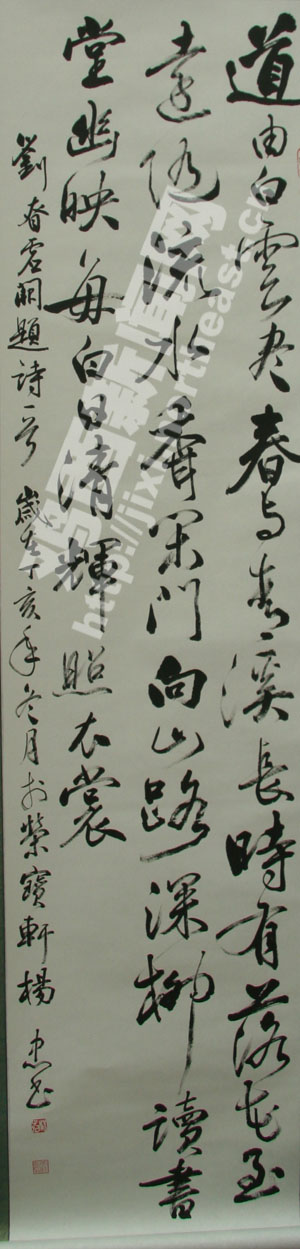 道由白雲尽春与青溪長時有落花至
遠随流水香閑門向山路深柳讀書
堂幽映每白日清輝照衣裳
劉眘虛闕題詩一首 歲在丁亥年冬月於榮寶軒楊忠書
鸡西新闻网